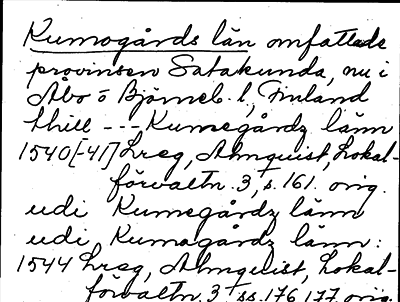 Kumogårds län omfattade
provinsen Satakunda, nu i
Åbo o Björneb. l., Finland
thill --- Kumegårdz länn
1540[-41] Lreg, Almquist, Lokal-
förvaltn. 3, s. 161. orig.
udi Kumegårdz länn
udi Kumagårdz länn:
1544 Lreg, Almquist, Lokal-
förvaltn. 3 ss. 176 177 orig.